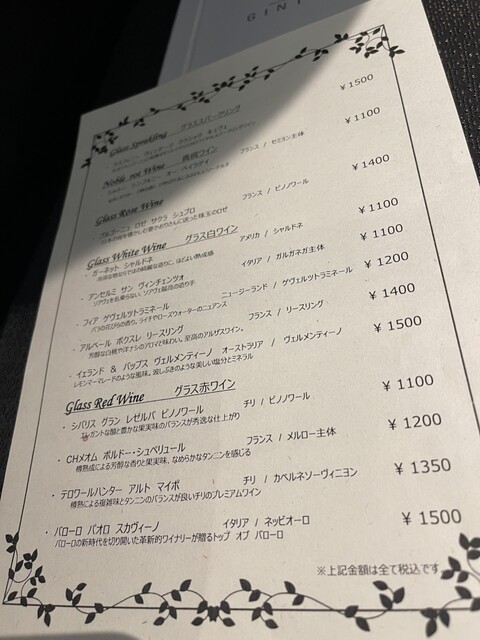 GINZ
Glass Sparkling グラススパークリング
¥1500
Noble rot Wine 貴腐ワイン
フランス / セミヨン主体 ¥1100
Glass Rose Wine
ブルゴーニュ ロゼ サクラ シュブロ フランス / ピノノワール ¥1400
Glass White Wine グラス白ワイン
・ガーネット シャルドネ アメリカ / シャルドネ ¥1100
・アンセルミ サン ヴィンチェンツォ イタリア / ガルガネガ主体 ¥1100
・フィア ゲヴェルツトラミネール ニュージーランド / ゲヴェルツトラミネール ¥1200
バラの花びらの香り。ライチやローズウォーターのニュアンス
・アルベール ボクスレ リースリング フランス / リースリング ¥1400
芳醇な白桃や洋ナシのアロマと味わい。至高のアルザスワイン。
・イェランド & パップス ヴェルメンティーノ オーストラリア / ヴェルメンティーノ ¥1500
レモンマーマレードのような風味。波しぶきのような美しい塩分とミネラル
Glass Red Wine グラス赤ワイン
・シバリス グラン レゼルバ ピノノワール チリ / ピノノワール ¥1100
エレガントな酸と豊かな果実味のバランスが秀逸な仕上がり
・CHメオム ボルドー・シュペリュール フランス / メルロー主体 ¥1200
樽熟成による芳醇な香りと果実味、なめらかなタンニンを感じる
・テロワールハンター アルト マイポ チリ / カベルネソーヴィニヨン ¥1350
樽熟による複雑味とタンニンのバランスが良いチリのプレミアムワイン
・バローロ パオロ スカヴィーノ イタリア / ネッビオーロ ¥1500
バローロの新時代を切り開いた革新的ワイナリーが贈るトップ オブ バローロ
※上記金額は全て税込です